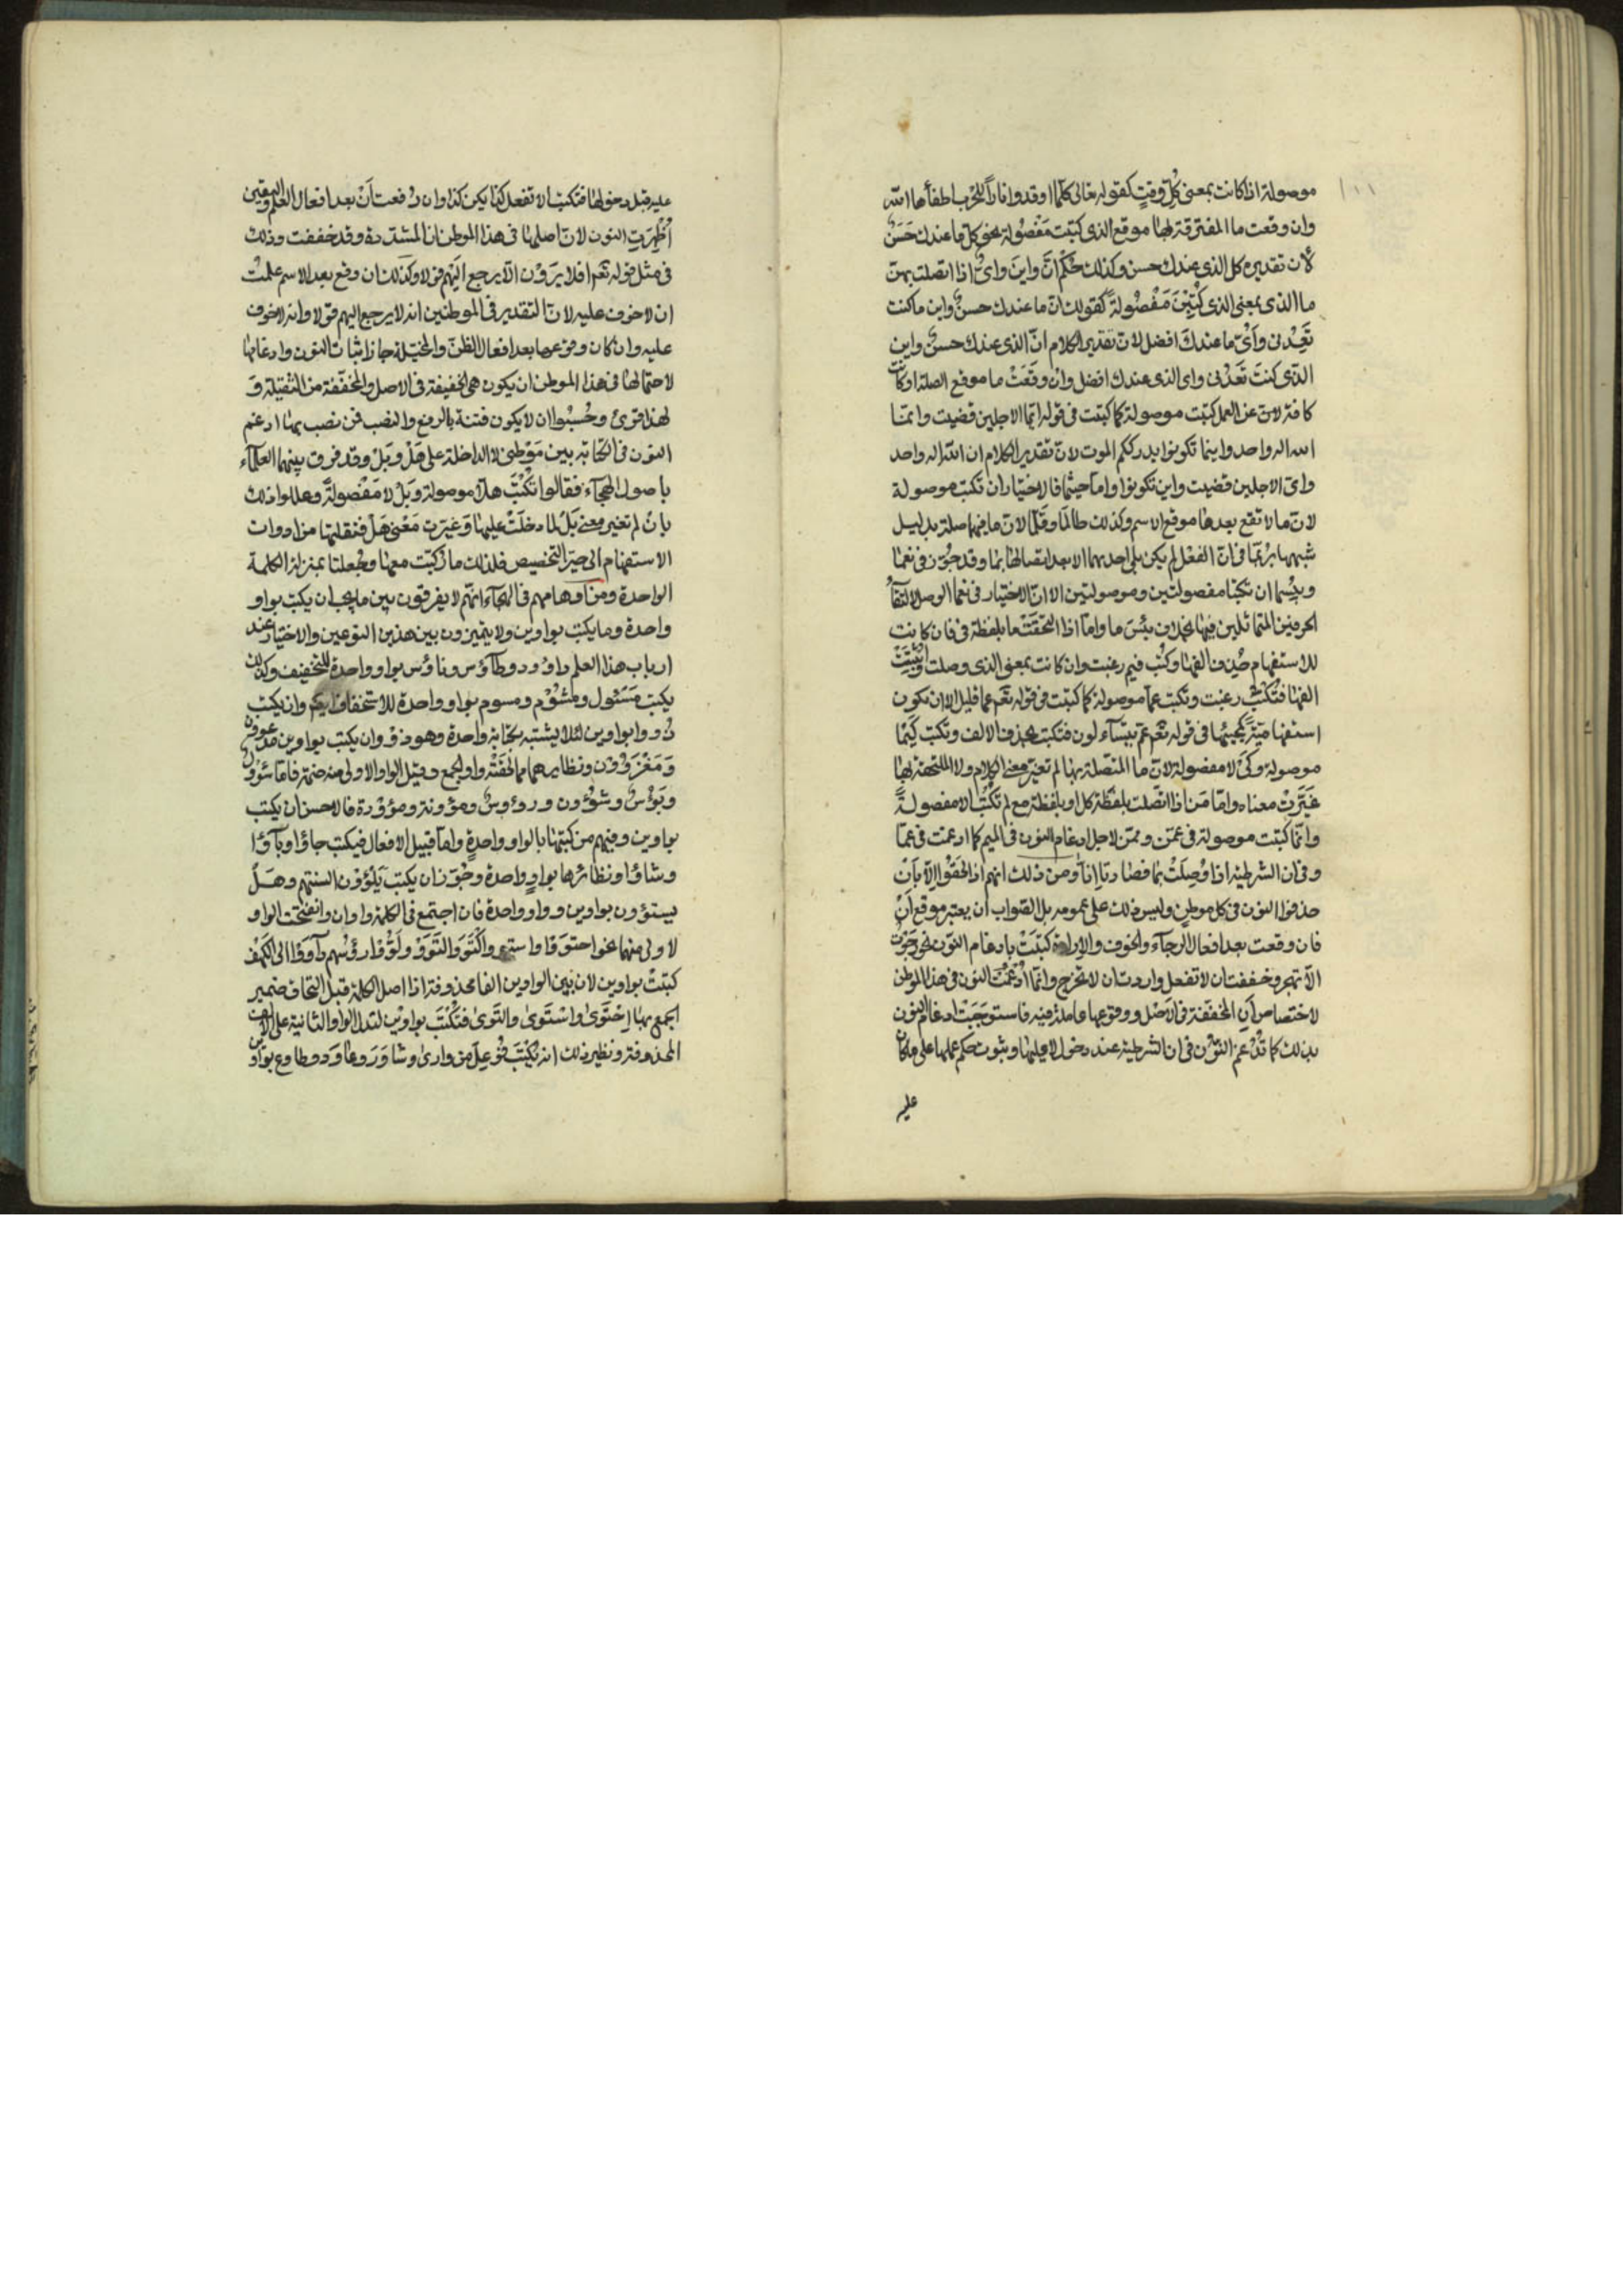 موصولة اذا كانت بمعنى كل وقت كقوله تعالى كلما اوقدوا نارا للحرب اطفأها الله
وان وقعت ما المقترقة لها موقع الذى كتبت مفصولة نحو كل ما عندك حسن
لأن تقديره كل الذى عندك حسن وكذلك حكم انّ واين واىّ اذا اتصلت بهن
ما الذى بمعنى الذى كتبن مفصولة كقولك انّ ما عندك حسن واين ما كنت
تعدنى وأىّ ما عندك افضل لانّ تقدير الكلام انّ الذى عندك حسن واين
الذى كنت تعدنى واى الذى عندك افضل وان وقعت ما موقع الصلة او كانت
كافة لانّ عن العمل كتبت موصولة كما كتبت فى قوله ايّما الاجلين قضيت وانما
الله اله واحد واينما تكونوا يدرككم الموت لانّ تقدير الكلام ان الله اله واحد
واىّ الاجلين قضيت واين تكونوا وامّا حيثما فالاختيار ان تكتب موصولة
لانّ ما لا تقع بعدها موقع الاسم وكذلك طالما وقلّما لانّ ما فيهما صلة بدليل
شبههما بربّما فى انّ الفعل لم يكن يلى احدهما الا بعد اتصالها بما وقد جوّز فى نعما
وبئسما ان تكتبا مفصولتين وموصولتين الا انّ الاختيار فى نعما الوصل لالتقاء
الحرفين المتماثلين فيها بخلاف بئس ما وامّا اذا التحقت ما بلفظة فى فان كانت
للاستفهام حذف الفها وكتب فيم رغبت وان كانت بمعنى الذى وصلت واثبتت
الفها فتكتب رغبت وتكتب عمّا موصولة كما كتبت فى قوله تعم عمّا قليل الا ان تكون
استفهامية كمجيئها فى قوله تعم عمّ يتسآءلون فتكتب بحذف الالف وتكتب كيما
موصولة وكى لا مفصولة لانّ ما المتصلة بها لم تغير معنى الكلام ولا الملتحقة بها
غيّرت معناه وامّا من اذا اتصلت بلفظة كل او بلفظة مع لم تكتب الا مفصولة
وانّما كتبت موصولة فى عمّن وممّن لاجل ادغام النون فى الميم كما ادغمت فى عمّا
وفى ان الشرطية اذا وصلت بما فصارتا إمّا ومن ذلك انهم اذا لحقوا الا بان
حذفوا النون فى كل موطن وليس ذلك على عمومه بل الصواب ان يعتبر موقع ان
فان وقعت بعد افعال الرجآء والخوف والارادة كتبت بادغام النون نحو رجوت
الّا تهجر وخفت ان لا تفعل واردت ان لا تخرج وانّما ادغمت النون فى هذا الموطن
لاختصاص ان المخففة فى الاصل ووقوعها عاملة فيه فاستوجبت ادغام النون
بذلك كما تدغم النون فى ان الشرطية عند دخول لا عليها وثبوت حكم عملها على ما كان
عليه
عليه قبل دخولها فتكتب الا تفعل كذا يكن كذا وان وقعت أن بعد افعال العلم واليقين
أظهرت النون لانّ اصلها فى هذا الموطن انّ المشددة وقد خففت وذلك
فى مثل قوله تعم افلا يرون الّا يرجع اليهم قولا وكذلك ان وقع بعدها الاسم علمت
ان لا خوف عليه لانّ التقدير فى الموطنين انه لا يرجع اليهم قولا وانه لا خوف
عليه وان كان وقوعها بعد افعال الظنّ والمخيّلة جاز اثبات النون وادغامها
لاحتمالها فى هذا الموطن ان يكون هى الخفيفة فى الاصل والمخففة من الثقيلة و
لهذا قرئ وحسبوا ان لا يكون فتنة بالرفع والنصب فمن نصب بها ادغم
النون فى الكتابة بين موطنى لا الداخلة على هل وبل وقد فرق بينهما العلمآء
باصول الهجآء فقالوا تكتب هلّا موصولة وبل لا مفصولة وعللوا ذلك
بان لم تغير معنى بل لما دخلت عليها وغيرت معنى هل فنقلتها من ادوات
الاستفهام الى حيز التخصيص فلذلك ما ركبت معها وجعلتا بمنزلة الكلمة
الواحدة ومن اوهامهم فى الهجآء انّهم لا يفرقون بين ما يجب ان يكتب بواو
واحدة وما يكتب بواوين ولا يميزون بين هذين النوعين والاختيار عند
ارباب هذا العلم داؤد وطآوس وناؤس بواو واحدة للتخفيف وكذلك
يكتب مسئول ومشؤم ومسوم بواو واحدة للاستخفاف وان يكتب
ذوو ابواوين لئلا يشتبه بكتابة واحدة وهو ذو وان يكتب بواوين مدعوون
ومغزوون ونظايرهما مما لحقته واو الجمع وقبل الواو الاولى منه ضمة فاما سؤول
وبؤس وشؤون ورءوس ومؤونة وموؤدة فالاحسن ان يكتب
بواوين ومنهم من كتبها بالواو واحدة وامّا قبيل الافعال فيكتب جاؤا وبآؤا
وشاؤا ونظائرها بواو واحدة وجوّز ان يكتب يلوون السنتهم وهل
يستوون بواوين وواو واحدة فان اجتمع فى الكلمة واوان وانفتحت الواو
لاولى منهما نحو احتووا واستووا واكتووا والتووا ولوّوا رؤسهم وآووا الى الكهف
كتبت بواوين لان بين الواوين الفا محذوفة اذ اصل الكلمة قبل التحاق ضمير
الجمع بها احتوى واستوى والتوى فتكتب بواوين لتدل الواو الثانية على الالف
المحذوفة ونظير ذلك انه يكتب فوعل من وارى وشاور وعاود وطاوع بواوين